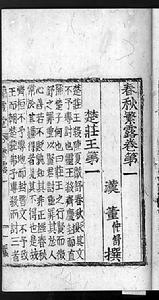 春秋繁露卷第一
漢董仲舒撰
楚莊王第一
楚莊王殺陳夏徵舒春秋貶其文
不予專討也靈王殺齊慶封而直
稱楚子何也曰莊王之行賢而徵
舒之罪重以賢君討重罪其於人
心善若不貶孰知其非正經春秋
常於其嫌得者見其不得也是故
齊桓不予專地而封晉文不予致
王而朝楚莊弗予專殺而討三者